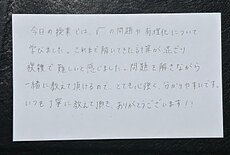 今日の授業では、√の問題や有理化について
学びました。これまで解いてきた計算が混ざり
複雑で難しいと感じました。問題を解きながら
一緒に教えて頂けるので、とても心強く、分かりやすいです。
いつも丁寧に教えて頂き、ありがとうございます!!